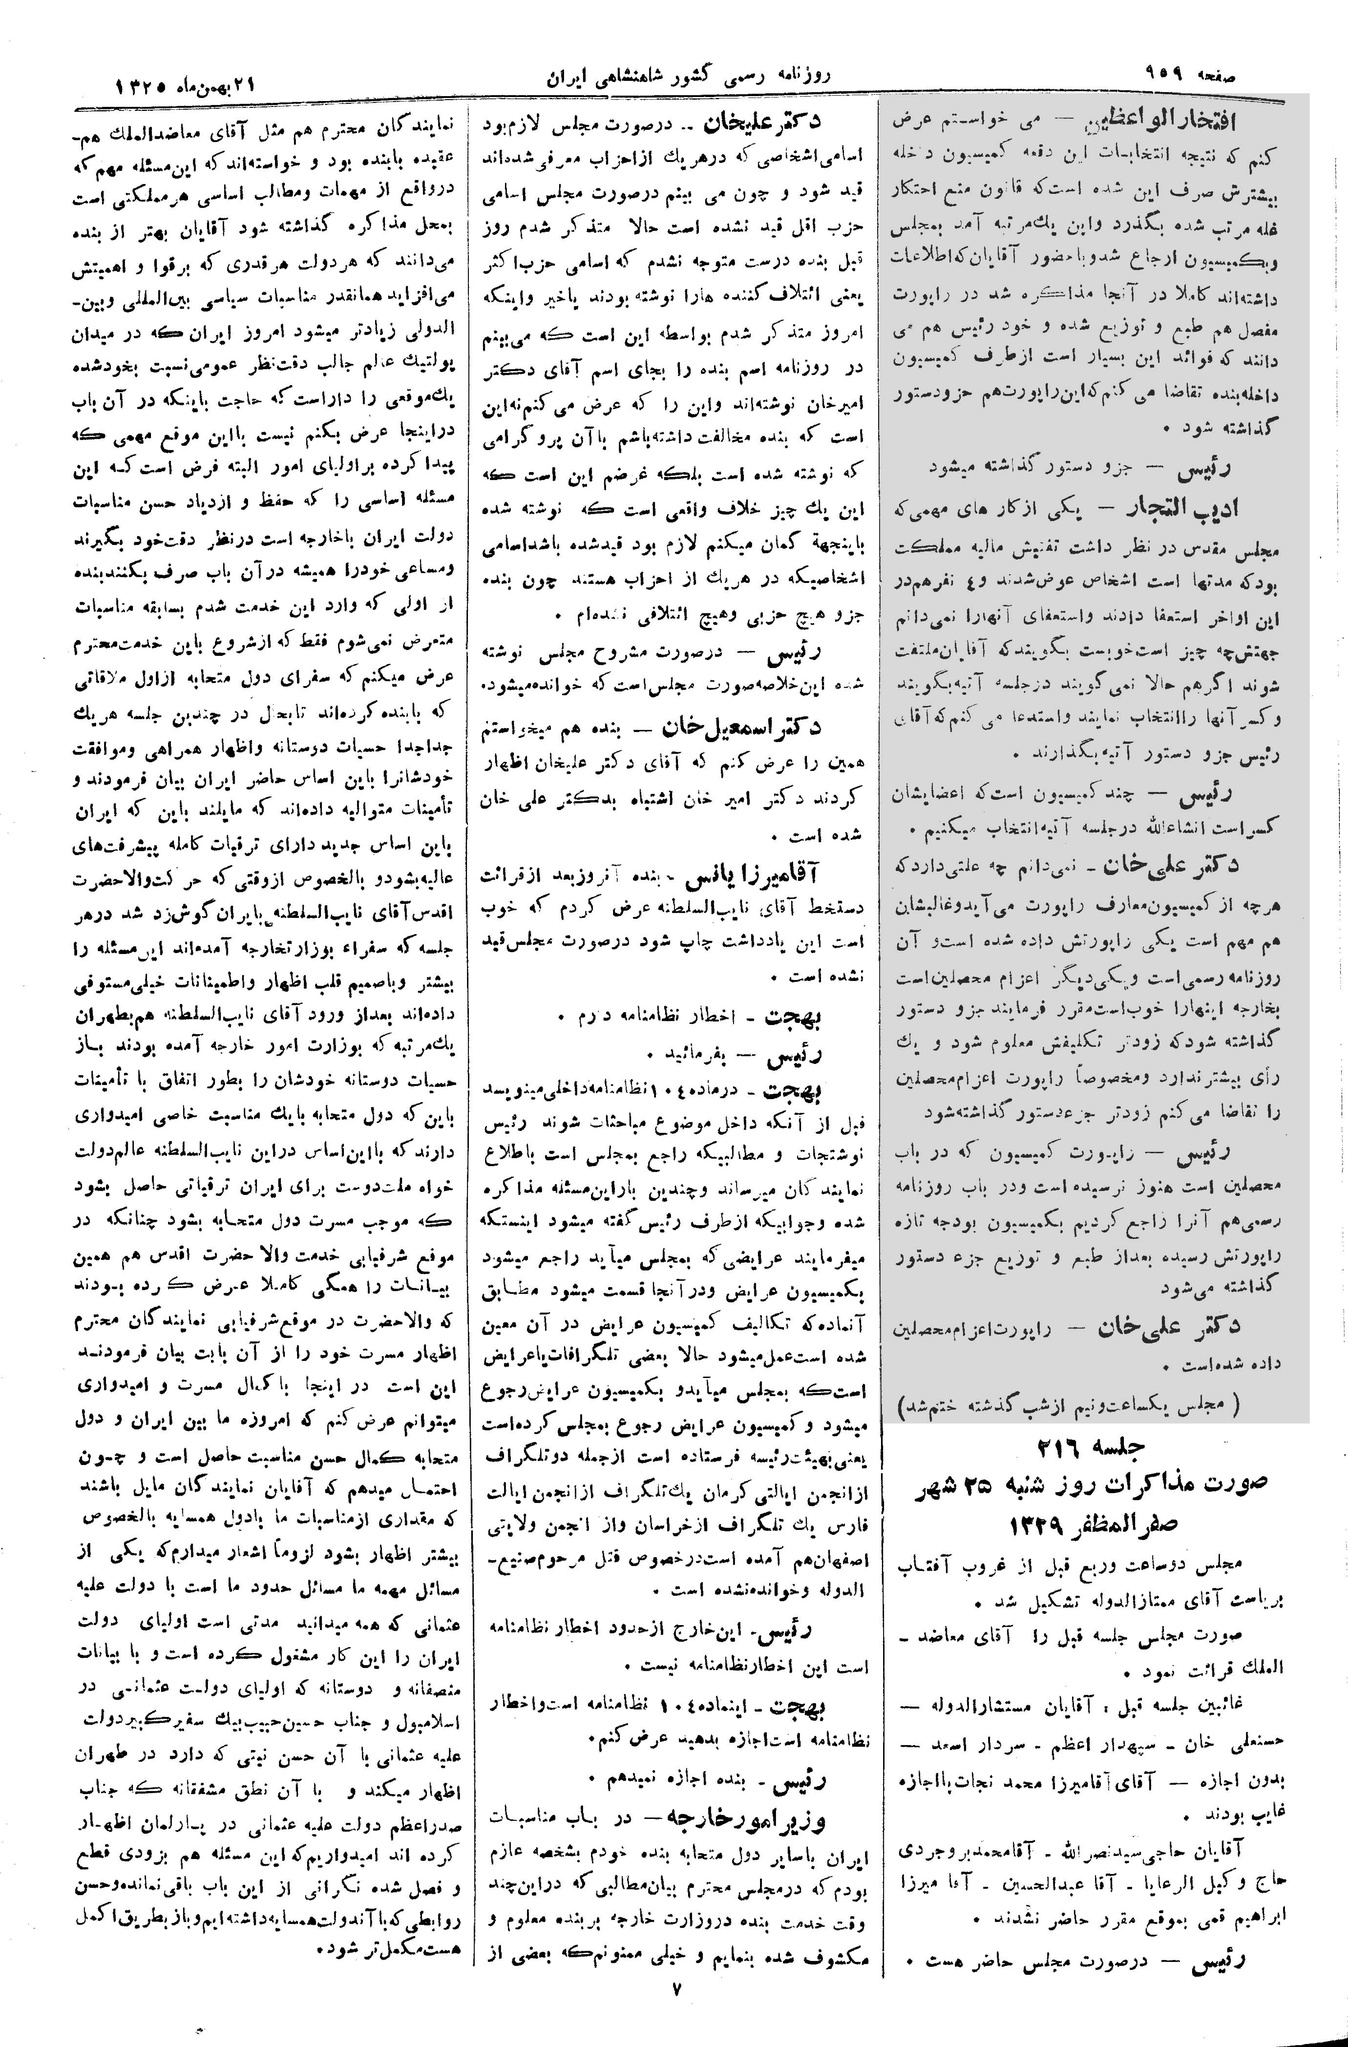 صفحه ۹۵۹
روزنامه رسمی کشور شاهنشاهی ایران
۲۱ بهمن‌ماه ۱۳۲۵
افتخارالواعظین — می خواستم عرض
کنم که نتیجه انتخابات این دفعه کمیسیون داخله
بیشترش صرف این شده است‌که قانون منع احتکار
غله مرتب شده بگذرد واین یك‌مرتبه آمد بمجلس
وبکمیسیون ارجاع شدوباحضور آقایان‌که‌اطلاعات
داشته‌اند کاملا در آنجا مذاکره شد در راپورت
مفصل هم طبع و توزیع شده و خود رئیس هم می
دانند که فوائد این بسیار است ازطرف کمیسیون
داخله‌بنده تقاضا می کنم‌که‌این‌راپورت‌هم جزودستور
گذاشته شود .
رئیس — جزو دستور گذاشته میشود
ادیب التجار — یکی ازکار های مهمی‌که
مجلس مقدس در نظر داشت تفتیش مالیه مملکت
بودکه مدتها است اشخاص عوض‌شدند و٤ نفرهم‌در
این اواخر استعفا دادند واستعفای آنهارا نمی‌دانم
جهتش‌چه چیز است‌خوبست بگویندکه آقایان‌ملتفت
شوند اگرهم حالا نمی‌گویند درجلسه آتیه‌بگویند
وکسرآنها راانتخاب نمایند واستدعا می کنم‌که‌آقای
رئیس جزو دستور آتیه‌بگذارند .
رئیس — چند کمیسیون است‌که اعضایشان
کسراست انشاءالله درجلسه آتیه‌انتخاب میکنیم .
دکتر علی‌خان - نمی‌دانم چه علتی‌داردکه
هرچه از کمیسیون‌معارف راپورت می‌آیدوغالبشان
هم مهم است یکی راپورتش داده شده است‌و آن
روزنامه رسمی‌است ویکی‌دیگر اعزام محصلین‌است
بخارجه اینهارا خوب‌است‌مقرر فرمایند جزو دستور
گذاشته شودکه زودتر تکلیفش معلوم شود و یك
رأی بیشترندارد ومخصوصاً راپورت اعزام‌محصلین
را تقاضا می‌کنم زودتر جزءدستور گذاشته‌شود
رئیس — راپورت کمیسیون که در باب
محصلین است هنوز نرسیده است ودر باب روزنامه
رسمی‌هم آنرا راجع کردیم بکمیسیون بودجه تازه
راپورتش رسیده بعداز طبع و توزیع جزء دستور
گذاشته می‌شود
دکتر علی‌خان — راپورت‌اعزام‌محصلین
داده شده‌است .
( مجلس یکساعت‌ونیم ازشب گذشته ختم‌شد)
جلسه ۲۱۶
صورت مذاکرات روز شنبه ۲۵ شهر
صفرالمظفر ۱۳۲۹
مجلس دوساعت وربع قبل از غروب آفتاب
بریاست آقای ممتازالدوله تشکیل شد .
صورت مجلس جلسه قبل را آقای معاضد -
الملك قرائت نمود .
غائبین جلسه قبل : آقایان مستشارالدوله —
حسنعلی خان - سپهدار اعظم - سردار اسعد —
بدون اجازه — آقای‌آقامیرزا محمد نجات‌بااجازه
غایب بودند .
آقایان حاجی‌سیدنصرالله - آقامحمدبروجردی
حاج وکیل الرعایا - آقا عبدالحسین - آقا میرزا
ابراهیم قمی بموقع مقرر حاضر نشدند .
رئیس — درصورت مجلس حاضر هست .
دکتر علیخان .. درصورت مجلس لازم‌بود
اسامی‌اشخاصی که درهریك ازاحزاب معرفی شده‌اند
قید شود و چون می بینم درصورت مجلس اسامی
حزب اقل قید نشده است حالا متذکر شدم روز
قبل بنده درست متوجه نشدم که اسامی حزب‌اکثر
یعنی ائتلاف‌کننده هارا نوشته بودند یاخیر واینکه
امروز متذکر شدم بواسطه این است که می‌بینم
در روزنامه اسم بنده را بجای اسم آقای دکتر
امیرخان نوشته‌اند واین را که عرض می‌کنم‌نه‌این
است که بنده مخالفت داشته‌باشم باآن پروگرامی
که نوشته شده است بلکه غرضم این است که
این یك چیز خلاف واقعی است که نوشته شده
باینجهة گمان میکنم لازم بود قیدشده باشداسامی
اشخاصیکه در هریك از احزاب هستند چون بنده
جزو هیچ حزبی وهیچ ائتلافی نشده‌ام .
رئیس — درصورت مشروح مجلس نوشته
شده این‌خلاصه‌صورت مجلس‌است‌که خوانده‌میشود.
دکتراسمعیل‌خان — بنده هم میخواستم
همین را عرض کنم که آقای دکتر علیخان اظهار
کردند دکتر امیر خان اشتباه بدکتر علی خان
شده است .
آقامیرزایانس - بنده آنروزبعد ازقرائت
دستخط آقای نایب‌السلطنه عرض کردم که خوب
است این یادداشت چاپ شود درصورت مجلس‌قید
نشده است .
بهجت - اخطار نظامنامه دارم .
رئیس — بفرمائید .
بهجت - درماده۱۰٤نظامنامه‌داخلی‌مینویسد
قبل از آنکه داخل موضوع مباحثات شوند رئیس
نوشتجات و مطالبیکه راجع بمجلس است باطلاع
نمایندگان میرساند وچندین باراین‌مسئله مذاکره
شده وجوابیکه ازطرف رئیس‌گفته میشود اینستکه
میفرمایند عرایضی‌که بمجلس میآید راجع میشود
بکمیسیون عرایض ودرآنجا قسمت میشود مطابق
آنماده‌که تکالیف کمیسیون عرایض در آن معین
شده است‌عمل‌میشود حالا بعضی تلگرافات‌یاعرایض
است‌که بمجلس میآیدو بکمیسیون عرایض‌رجوع
میشود وکمیسیون عرایض رجوع بمجلس کرده‌است
یعنی‌بهیئت‌رئیسه فرستاده است ازجمله دوتلگراف
ازانجمن ایالتی‌کرمان یك‌تلگراف ازانجمن ایالت
فارس یك تلگراف ازخراسان واز انجمن ولایتی
اصفهان‌هم آمده است‌درخصوص قتل مرحوم‌صنیع-
الدوله وخوانده‌نشده است .
رئیس- این‌خارج ازحدود اخطار نظامنامه
است این اخطارنظامنامه نیست .
بهجت - اینماده۱۰٤ نظامنامه است‌واخطار
نظامنامه است‌اجازه بدهید عرض‌کنم.
رئیس - بنده اجازه نمیدهم .
وزیرامورخارجه — در باب مناسبات
ایران باسایر دول متحابه بنده خودم بشخصه عازم
بودم که درمجلس محترم بیان‌مطالبی که دراین‌چند
وقت خدمت بنده دروزارت خارجه بربنده معلوم و
مکشوف شده بنمایم و خیلی ممنونم‌که بعضی از
نمایندگان محترم هم مثل آقای معاضدالملك هم-
عقیده بابنده بود و خواسته‌اندکه این‌مسئله مهم‌که
درواقع از مهمات ومطالب اساسی هرمملکتی است
بمحل مذاکره گذاشته شود آقایان بهتر از بنده
می‌دانند که هردولت هرقدری که برقوا و اهمیتش
می‌افزاید همانقدر مناسبات سیاسی بین‌المللی وبین-
الدولی زیادتر میشود امروز ایران که در میدان
پولتیك عالم جالب دقت‌نظر عمومی‌نسبت بخودشده
یك‌موقعی را داراست‌که حاجت باینکه در آن باب
دراینجا عرض بکنم نیست بااین موقع مهمی که
پیدا کرده براولیای امور البته فرض است‌که این
مسئله اساسی را که حفظ و ازدیاد حسن مناسبات
دولت ایران باخارجه است درنظر دقت‌خود بگیرند
ومساعی خودرا همیشه درآن باب صرف بکنندبنده
از اولی که وارد این خدمت شدم بسابقه مناسبات
متعرض نمی‌شوم فقط که ازشروع باین خدمت‌محترم
عرض میکنم که سفرای دول متحابه ازاول ملاقاتی
که بابنده کرده‌اند تابحال در چندین جلسه هریك
جداجدا حسیات دوستانه واظهار همراهی وموافقت
خودشانرا باین اساس حاضر ایران بیان فرمودند و
تأمینات متوالیه داده‌اند که مایلند باین که ایران
باین اساس جدید دارای ترقیات کامله پیشرفت‌های
عالیه‌بشودو بالخصوص ازوقتی‌که حرکت‌والاحضرت
اقدس‌آقای نایب‌السلطنه بایران‌گوش‌زد شد درهر
جلسه که سفراء بوزارتخارجه آمده‌اند این مسئله را
بیشتر وباصمیم قلب اظهار واطمینانات خیلی‌مستوفی
داده‌اند بعداز ورود آقای نایب‌السلطنه هم‌بطهران
یك‌مرتبه‌که بوزارت امور خارجه آمده بودند باز
حسیات دوستانه خودشان را بطور اتفاق با تأمینات
باین که دول متحابه بایك مناسبت خاصی امیدواری
دارندکه بااین‌اساس دراین نایب‌السلطنه عالم‌دولت
خواه ملت‌دوست برای ایران ترقیاتی حاصل بشود
که موجب مسرت دول متحابه بشود چنانکه در
موقع شرفیابی خدمت والاحضرت اقدس هم همین
بیانات را همگی کاملا عرض کرده بودند
که والاحضرت در موقع‌شرفیابی نمایندگان محترم
اظهار مسرت خود را از آن بابت بیان فرمودند
این است در اینجا باکمال مسرت و امیدواری
میتوانم عرض‌کنم که امروزه ما بین ایران و دول
متحابه کمال حسن مناسبت حاصل است و چون
احتمال میدهم که آقایان نمایندگان مایل باشند
که مقداری ازمناسبات ما بادول همسایه بالخصوص
بیشتر اظهار بشود لزوماً اشعار میدارم‌که یکی از
مسائل مهمه ما مسائل حدود ما است با دولت علیه
عثمانی که همه میدانید مدتی است اولیای دولت
ایران را این کار مشغول کرده است و با بیانات
منصفانه و دوستانه که اولیای دولت عثمانی در
اسلامبول و جناب حسین‌حبیب‌بیك سفیرکبیردولت
علیه عثمانی با آن حسن نیتی که دارد در طهران
اظهار میکند و با آن نطق مشفقانه که جناب
صدراعظم دولت علیه عثمانی در پارلمان اظهار
کرده اند امیدواریم‌که این مسئله هم بزودی قطع
و فصل شده نگرانی از این باب باقی‌نمانده‌وحسن
روابطی‌که باآندولت‌همسایه‌داشته‌ایم‌وبازبطریق‌اکمل
هست‌مکمل‌تر شود.
۷